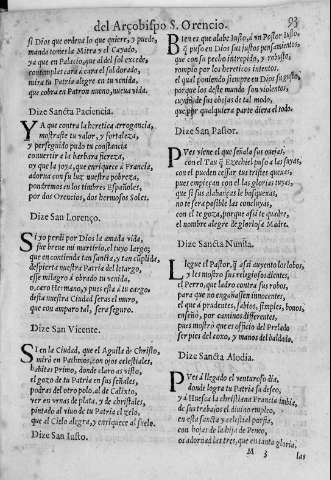 del Arçobispo S. Orencio. 93
si Dios que ordena lo que quiere, y puede,
manda tomeis la Mitra y el Cayado,
ya que en Palacio, que al del sol excede,
contemplais cara a cara el sol dorado,
mira tu Patria alegre en tu venida,
que cobra en Patron nueno, nueua vida.
Dize Sancta Paciencia.
YA que contra la heretica arrogancia,
mostraste tu valor, y fortaleza,
y perseguido pudo tu constancia
conuertir a la barbara fiereza,
oy que la joya, que enriquece á Francia,
adorna con su luz nuestra pobreza,
pondremos en los timbres Españoles,
por dos Orencios, dos hermosos Soles.
Dize San Lorenço.
SI yo perdi por Dios la amada vida,
fue breue mi martirio, el tuyo largo;
que en contienda tan sancta, y tan cũplida,
despierta nuestra Patria del letargo,
esse milagro á obrado tu venida,
o, caro Hermano, y pues esta á tu cargo
desta nuestra Ciudad seras el muro,
que con amparo tal, sera seguro.
Dize San Vicente.
SI en la Ciudad, que el Aguila de Christo,
mirò en Pathmos, con ojos celestiales,
habitas Primo, donde claro as visto,
el gozo de tu Patria en sus señales,
podras del otro polo, al de Calixto,
ver en vrnas de plata, y de christales,
pintado al viuo de tu Patria el zelo,
que al Cielo alegra, y enriquece al suelo.
Dize San Iusto.
BIen es que alabe Iusto, á vn Pastor Iusto
q̃ puso en Dios sus justos pensamientos,
que con su pecho intrepido, y robusto,
rompio por los hereticos intentos.
el qual poniendo siempre en Dios su gusto,
porque los deste mundo son violentos,
cuyas de sus obejas de tal modo,
que por qualquiera parte diera el todo.
Dize San Pastor.
PVes viene el que señala sus ouejas,
con el Tau q̃ Ezechiel puso a las suyas,
con el pueden cessar tus tristes quexas,
pues empieçan con el las glorias tuyas,
que si sus alabanças le bosquexas,
no te sera possible las concluyas,
con el te goza, porque assi te quadre,
el nombre alegre de gloriosa Madre.
Dize Sancta Nunila.
LLegue el Pastor, q̃ assi auyento los lobos,
y les mostro sus religiosos dientes,
el Perro, que ladro contra sus robos,
para que no engañassen innocentes,
el que á prudentes, sabios, simples, bonos,
enseño, por caminos differentes,
pues mostrò que es officio del Prelado
ser pies del coxo, y manos del baldado.
Dize Sancta Alodia.
PVes á llegado el venturoso dia,
donde logra tu Patria su desseo,
y á Huesca la christiana Francia imbia,
de sus trabajos el diuino empleo,
en esta sancta y celestial porfia,
con hojas de la hija de Peneo,
os adornad las tres, que en tanta gloria.
M 3 las